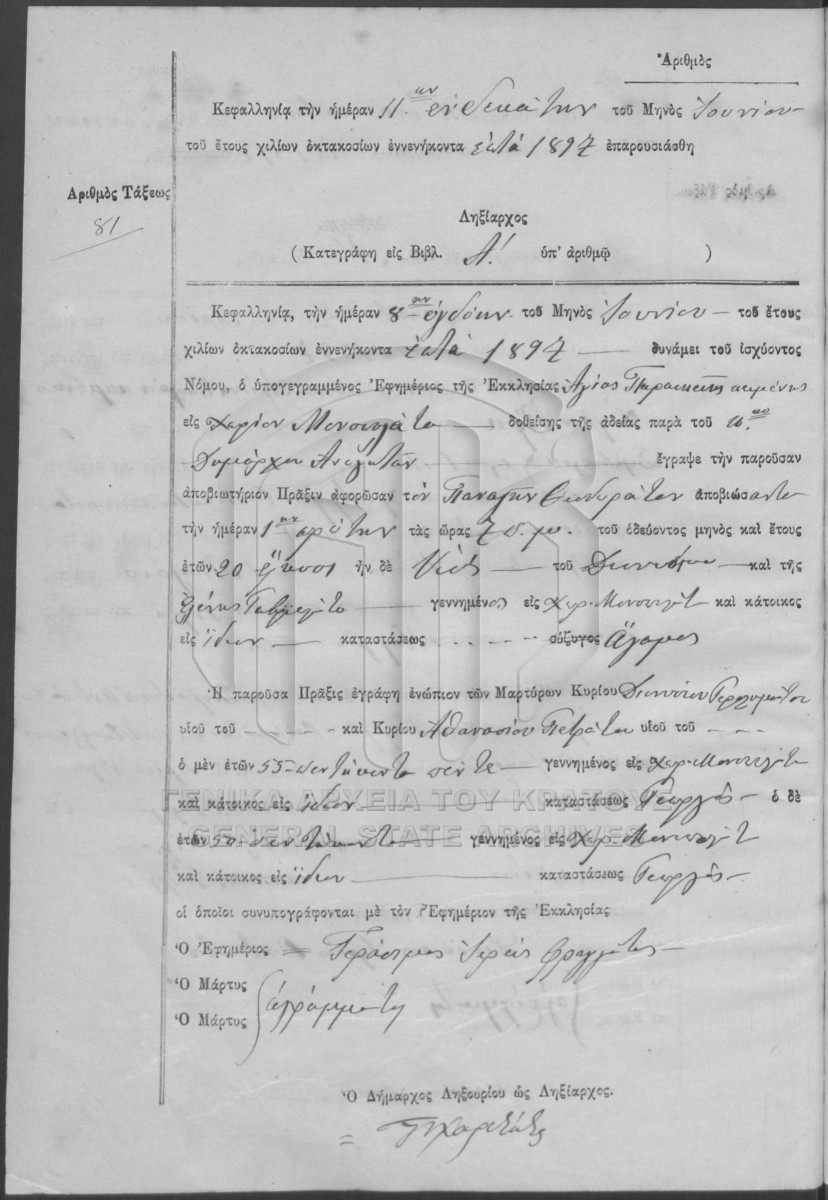 Ἀριθμὸς
Κεφαλληνίᾳ τὴν ἡμέραν 11ην ἑνδεκάτην τοῦ Μηνὸς Ἰουνίου
τοῦ ἔτους χιλίων ὀκτακοσίων ἐννενήκοντα ἑπτὰ 1897 ἐπαρουσιάσθη
Ἀριθμὸς Τάξεως
81
Ληξίαρχος
( Κατεγράφη εἰς Βιβλ. Α΄. ὑπ' ἀριθμῷ )
Κεφαλληνίᾳ, τὴν ἡμέραν 8ην ὀγδόην τοῦ Μηνὸς Ἰουνίου τοῦ ἔτους
χιλίων ὀκτακοσίων ἐννενήκοντα ἑπτὰ 1897 δυνάμει τοῦ ἰσχύοντος
Νόμου, ὁ ὑπογεγραμμένος Ἐφημέριος τῆς Ἐκκλησίας Ἁγίας Παρασκευῆς κειμένης
εἰς Χωρίον Μονοπωλάτα δοθείσης τῆς ἀδείας παρὰ τοῦ κου
Δημάρχου ἔγραψε τὴν παροῦσαν
ἀποβιωτήριον Πρᾶξιν ἀφορῶσαν τὸν Παναγῆν ἀποβιώσαντα
τὴν ἡμέραν 1ην πρώτην τὰς ὥρας 7 π.μ. τοῦ ὁδεύοντος μηνὸς καὶ ἔτους
ἐτῶν 20 εἴκοσι ἦν δὲ Υἱὸς τοῦ Διονυσίου καὶ τῆς
Ἑλένης γεννημένος εἰς Χωρ. Μονοπωλάτ καὶ κάτοικος
εἰς ἴδιον καταστάσεως σύζυγος Ἄγαμος
Ἡ παροῦσα Πρᾶξις ἐγράφη ἐνώπιον τῶν Μαρτύρων Κυρίου Διονυσίου
υἱοῦ τοῦ καὶ Κυρίου Ἀθανασίου Πετράτου υἱοῦ τοῦ
ὁ μὲν ἐτῶν 55 πεντήκοντα πέντε γεννημένος εἰς Χωρ. Μονοπωλάτα
καὶ κάτοικος εἰς ἴδιον καταστάσεως Γεωργὸς ὁ δὲ
ΓΕΝΙΚΑ ΑΡΧΕΙΑ ΤΟΥ ΚΡΑΤΟΥΣ
GENERAL STATE ARCHIVES
ἐτῶν 50 πεντήκοντα γεννημένος εἰς Χωρ. Μονοπωλάτ
καὶ κάτοικος εἰς ἴδιον καταστάσεως Γεωργὸς
οἱ ὁποῖοι συνυπογράφονται μὲ τὸν Ἐφημέριον τῆς Ἐκκλησίας
Ὁ Ἐφημέριος Γεράσιμος Ἱερεὺς
Ὁ Μάρτυς ἀγράμματοι
Ὁ Μάρτυς
Ὁ Δήμαρχος Ληξουρίου ὡς Ληξίαρχος.